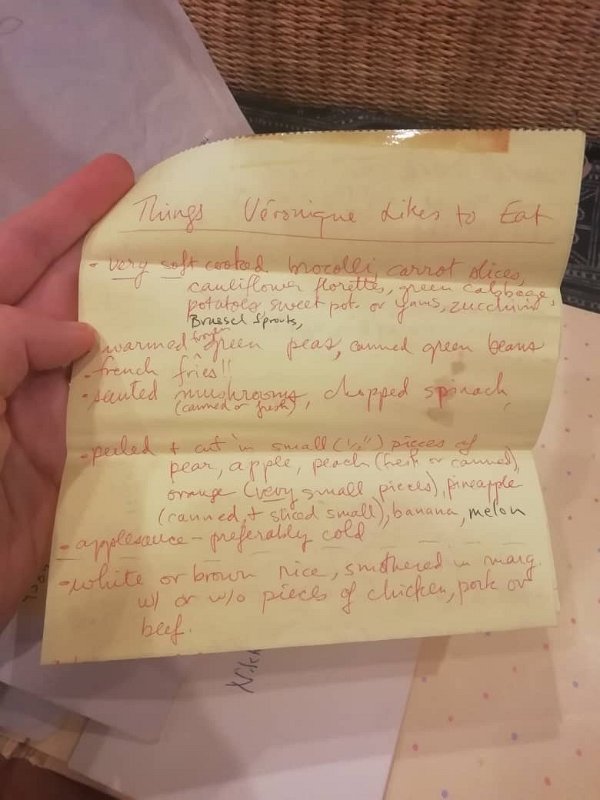 Things Véronique Likes to Eat
- very soft cooked brocolli, carrot slices,
cauliflower florettes, green cabbage,
potatoes sweet pot. or yams, zucchini,
Brussel Sprouts,
- warmed frozen green peas, canned green beans
- french fries!!
- sauted mushrooms, chopped spinach,
(canned or fresh)
- peeled + cut in small (1/2") pieces of
pear, apple, peach (fresh or canned),
orange (very small pieces), pineapple
(canned, + sliced small), banana, melon
- applesauce - preferably cold
- white or brown rice, smothered in marg.
w/ or w/o pieces of chicken, pork or
beef.